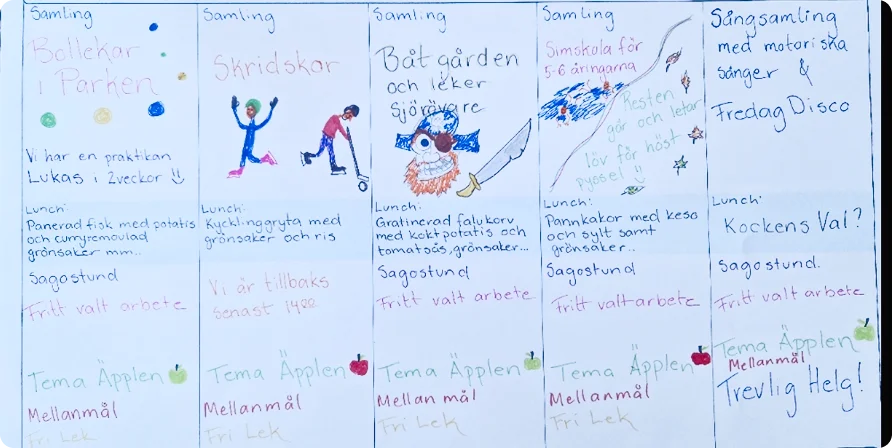 Samling
Bollekar
i Parken
Vi har en praktikan
Lukas i 2veckor
Lunch:
Panerad fisk med potatis
och curryremoulad
grönsaker mm..
Sagostund
Fritt valt arbete
Tema Äpplen
Mellanmål
Fri Lek
Samling
Skridskor
Lunch:
Kycklinggryta med
grönsaker och ris
Vi är tillbaks
senast 14:00
Tema Äpplen
Mellanmål
Fri Lek
Samling
Båt gården
och leker
Sjörövare
Lunch:
Gratinerad falukorv
med koktpotatis och
tomatsås, grönsaker...
Sagostund
Fritt valt arbete
Tema Äpplen
Mellan mål
Fri Lek
Samling
Simskola för
5-6 åringarna
Resten
går och letar
löv för höst
pyssel
Lunch:
Pannkakor med keso
och sylt samt
grönsaker..
Sagostund
Fritt valt arbete
Tema Äpplen
Mellanmål
Fri Lek
Sångsamling
med motoriska
sånger &
Fredag Disco
Lunch:
Kockens Val?
Sagostund.
Fritt valt arbete
Tema Äpplen
Mellanmål
Trevlig Helg!